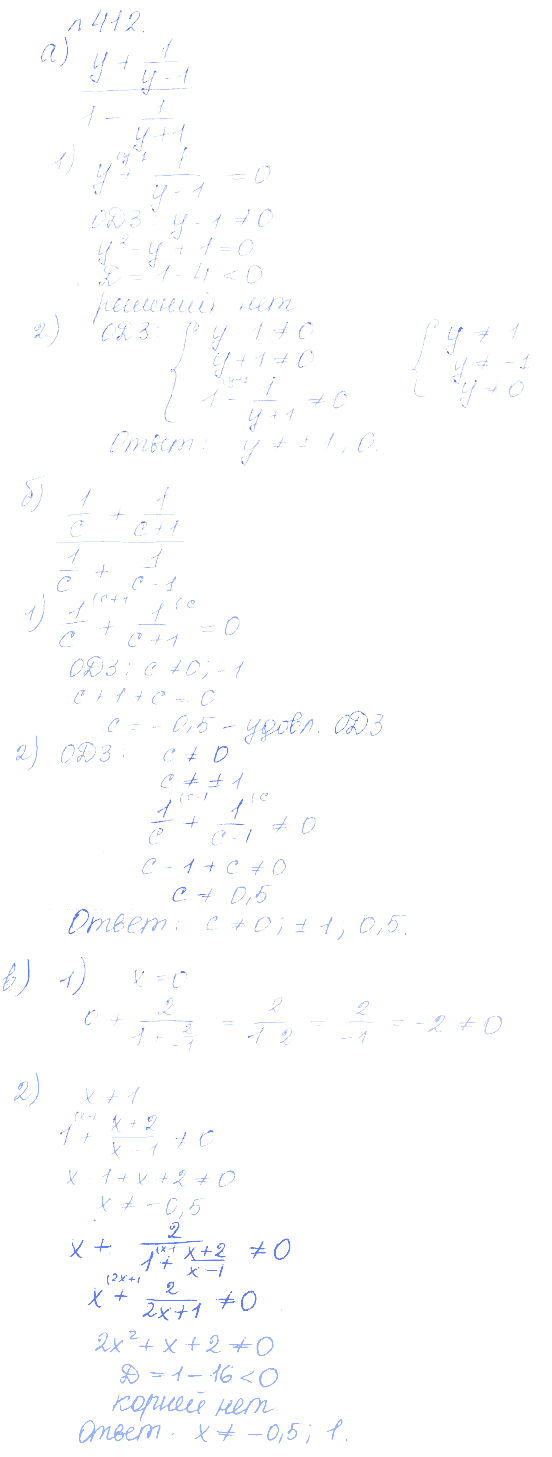 №412.
а) (y + 1/(y-1)) / (1 - 1/(y+1))
1) y + 1/(y-1) = 0
ОДЗ: y-1 ≠ 0
y² - y + 1 = 0
D = 1 - 4 < 0
решений нет
2) ОДЗ: { y - 1 ≠ 0 { y ≠ 1
y + 1 ≠ 0 y ≠ -1
1 - 1/(y+1) ≠ 0 y ≠ 0
Ответ: y ≠ ±1, 0.
б) (1/c + 1/(c+1)) / (1/c + 1/(c-1))
1) 1/c (c+1 + 1/(c+1) (c = 0
ОДЗ: c ≠ 0; -1
c + 1 + c = 0
c = -0,5 - удовл. ОДЗ
2) ОДЗ: c ≠ 0
c ≠ ±1
1/c (c-1 + 1/(c-1) (c ≠ 0
c - 1 + c ≠ 0
c ≠ 0,5
Ответ: c ≠ 0; ±1; 0,5.
в) 1) x = 0
0 + 2/(1 + 2/-1) = 2/(1-2) = 2/-1 = -2 ≠ 0
2) x ≠ 1
1 (x-1 + (x+2)/(x-1) ≠ 0
x - 1 + x + 2 ≠ 0
x ≠ -0,5
x + 2/(1 (x-1 + (x+2)/(x-1)) ≠ 0
x (2x+1 + 2/(2x+1) ≠ 0
2x² + x + 2 ≠ 0
D = 1 - 16 < 0
корней нет
Ответ. x ≠ -0,5; 1.